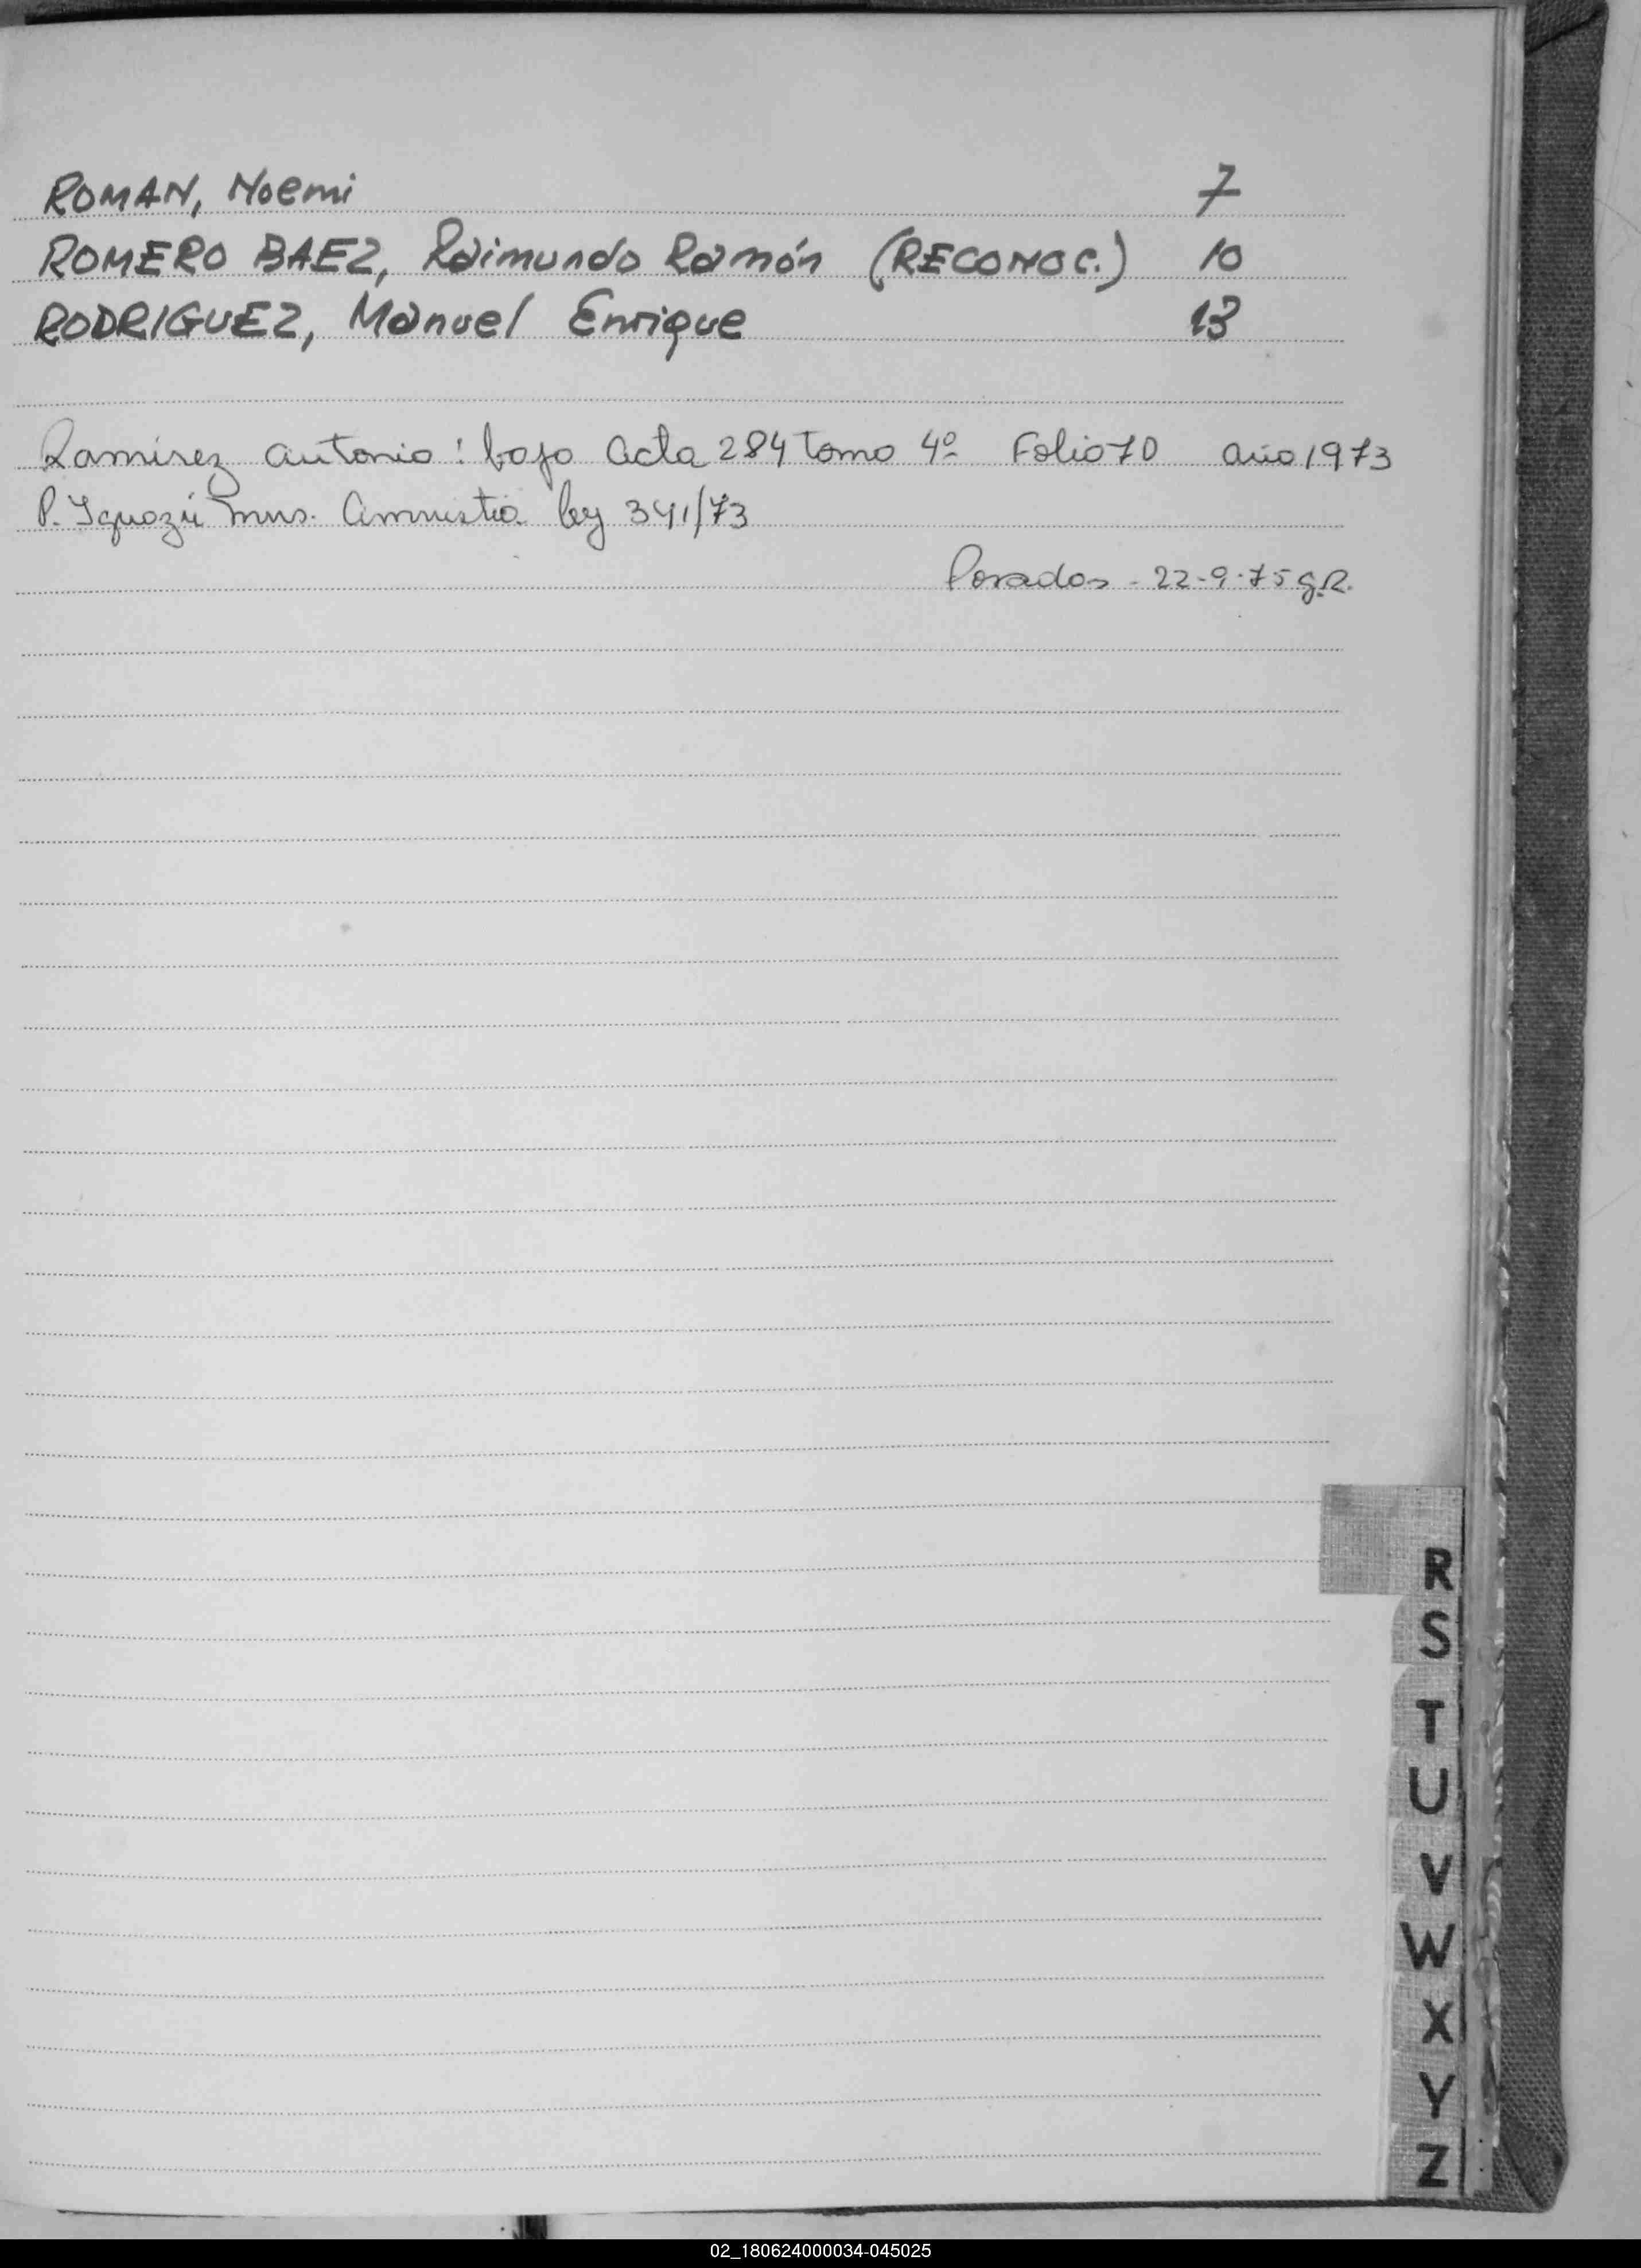 ROMAN, Noemi 7
ROMERO BAEZ, Raimundo Ramón (RECONOC.) 10
RODRIGUEZ, Manuel Enrique 13
Ramirez Antonio: bajo Acta 284 Tomo 4º Folio 70 año 1973
P. Iguazú Mns. Amnistia ley 341/73
Posadas - 22-9-75 G.R.
R
S
T
U
V
W
X
Y
Z
02_180624000034-045025